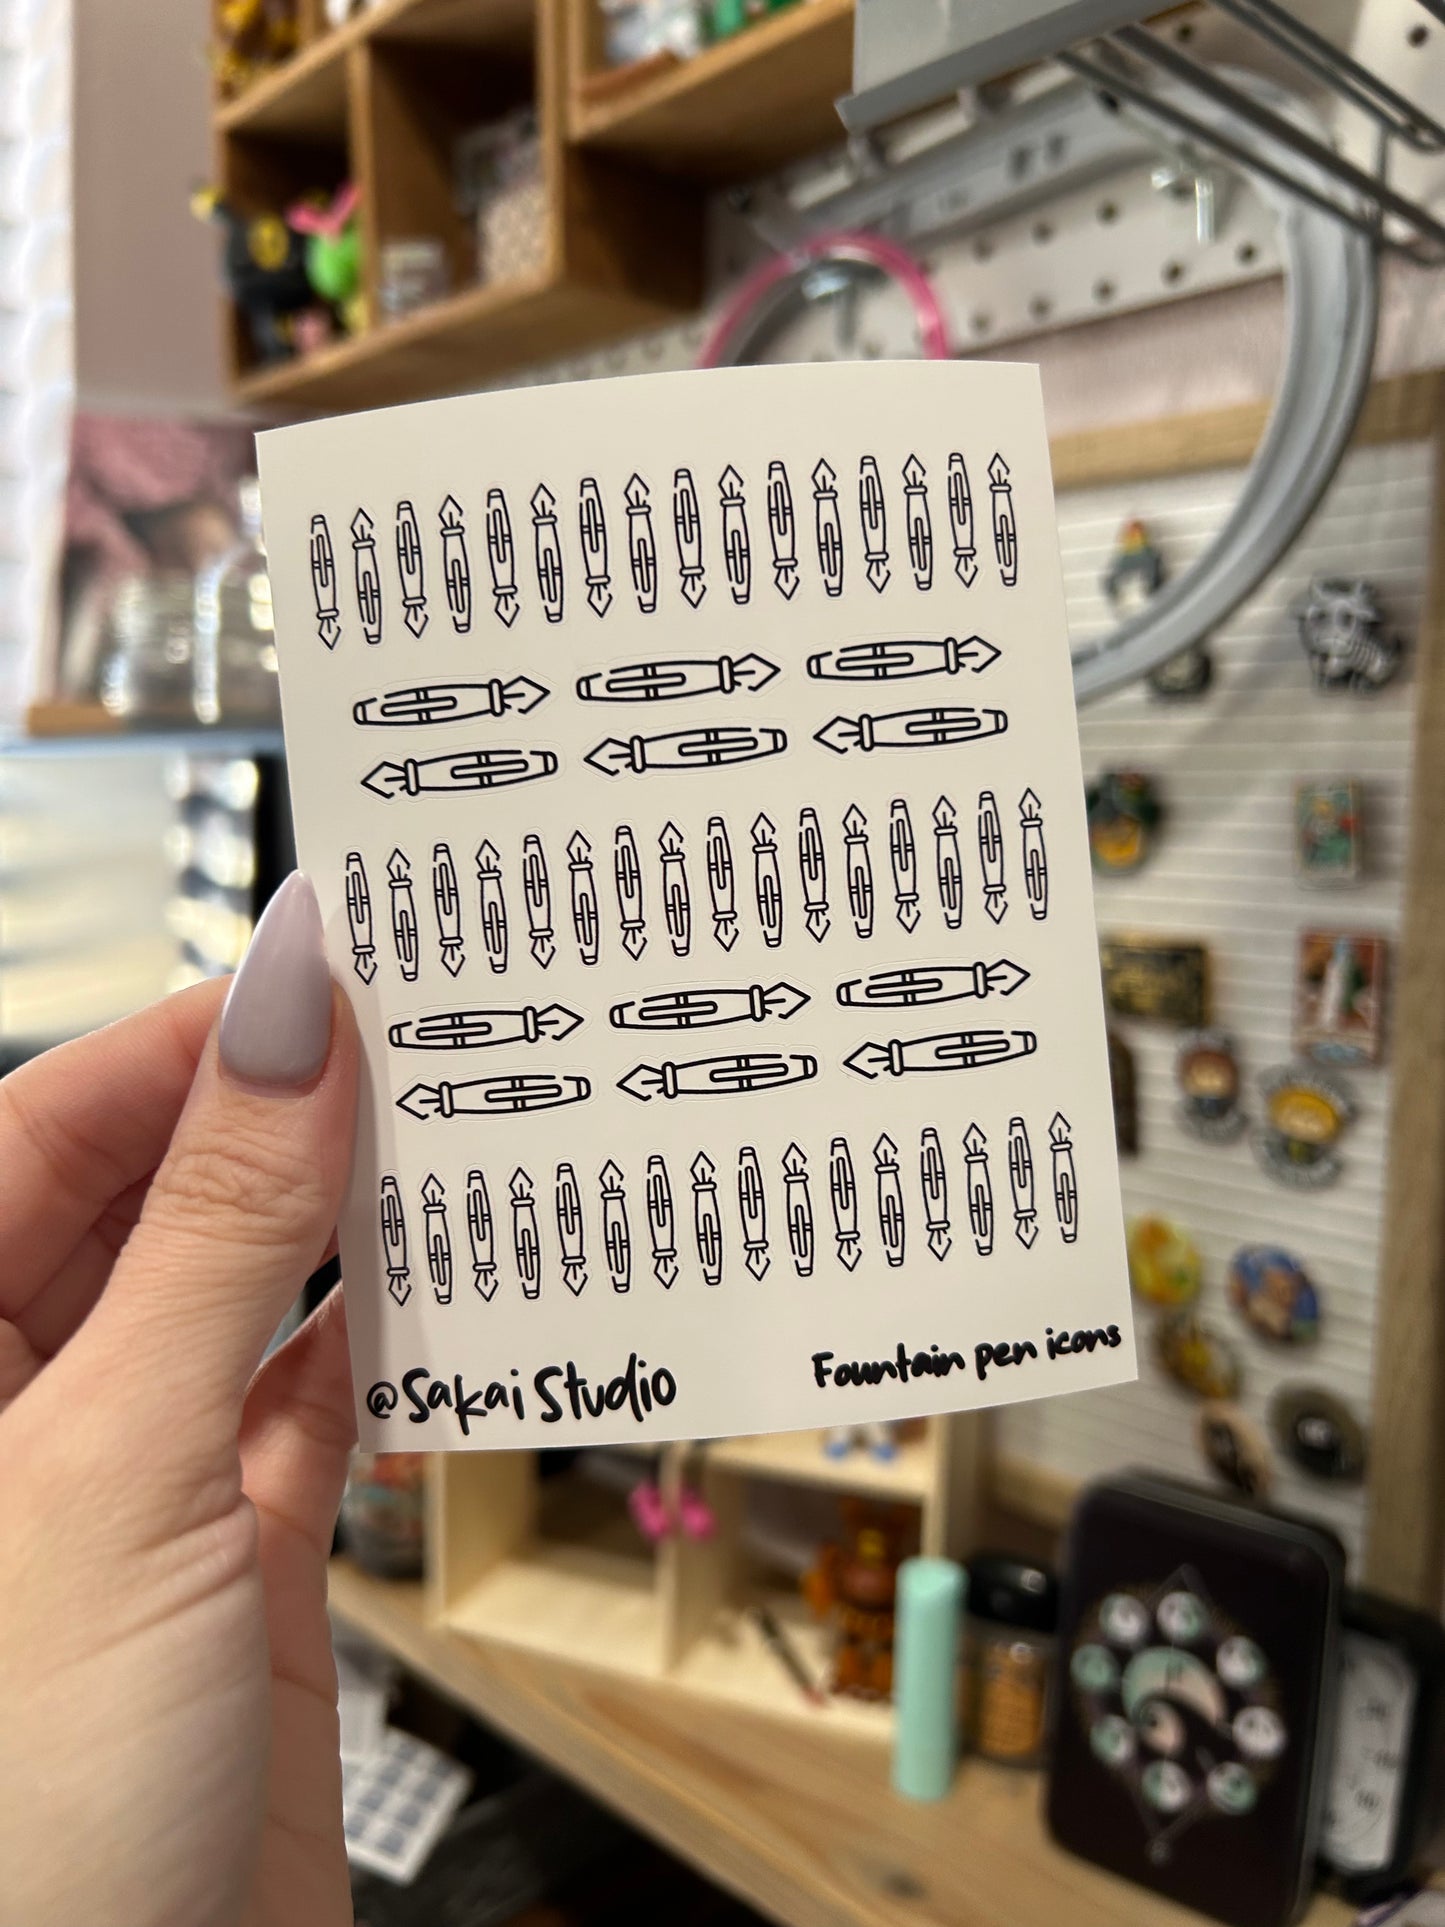 @Sakai Studio
Fountain pen icons